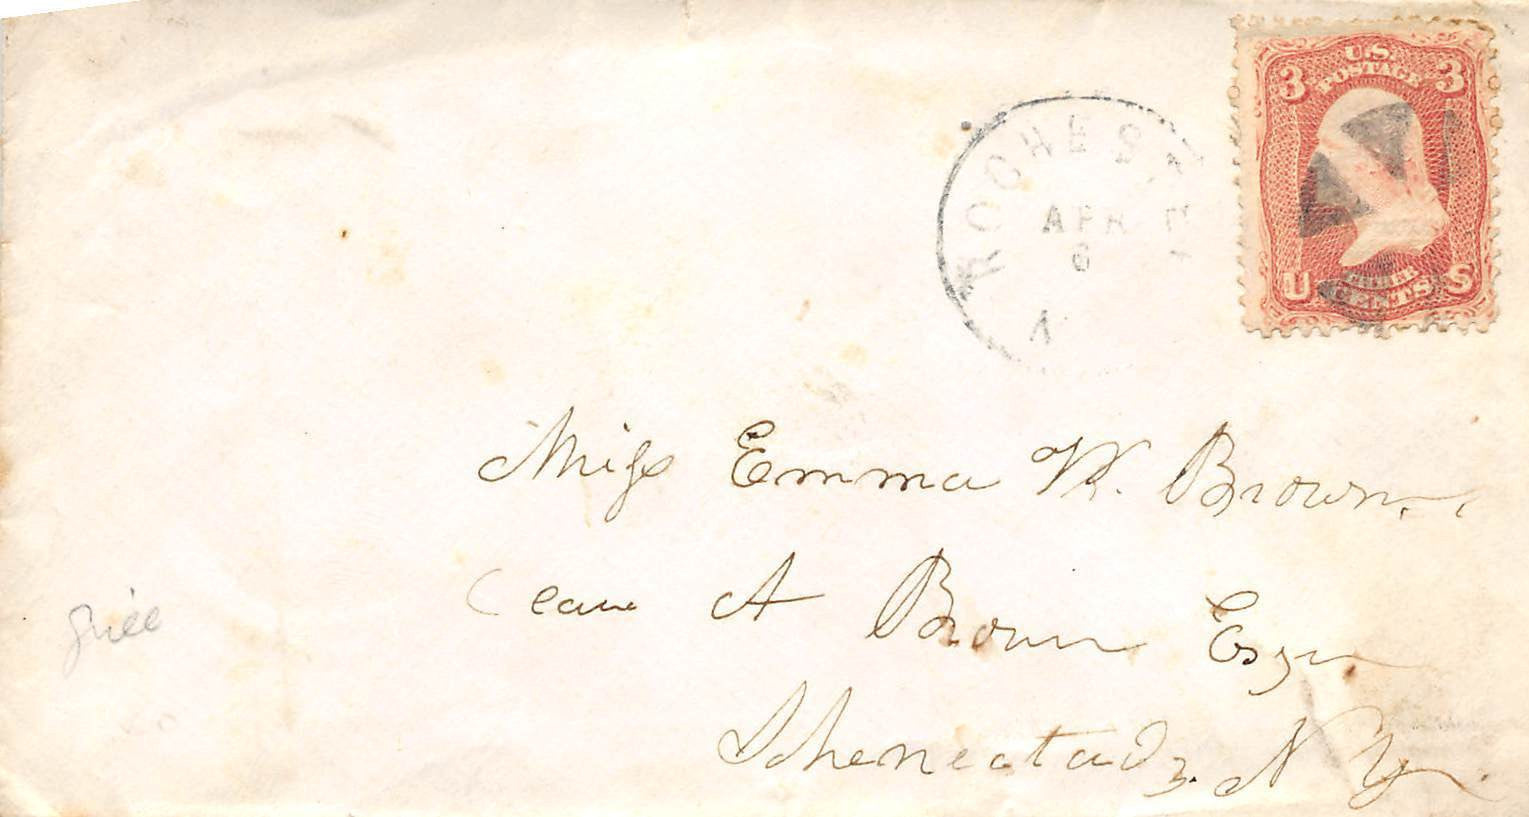 U.S.
POSTAGE
3 3
U THREE S
CENTS
ROCHESTER
APR
6
N
Miss Emma K. Brown
Care A Brown Esqr
Schenectady. N Y.